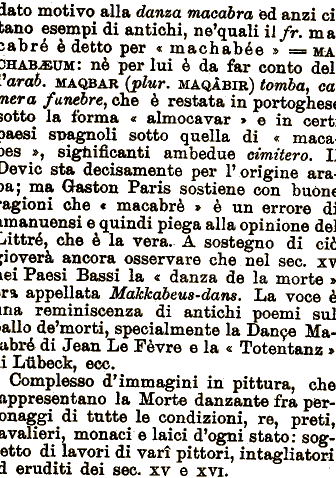 dato motivo alla danza macabra ed anzi ci
tano esempi di antichi, ne'quali il fr. ma
cabré è detto per « machabée » = MA
CHABÆUM: nè per lui è da far conto del
l'arab. MAQBAR (plur. MAQÂBIR) tomba, ca
mera funebre, che è restata in portoghese
sotto la forma « almocavar » e in cert
paesi spagnoli sotto quella di « maca
bes », significanti ambedue cimitero. I
Devic sta decisamente per l'origine ara
ba; ma Gaston Paris sostiene con buone
ragioni che « macabrè » è un errore di
amanuensi e quindi piega alla opinione del
Littré, che è la vera. A sostegno di ciò
gioverà ancora osservare che nel sec. XV
nei Paesi Bassi la « danza de la morte »
era appellata Makkabeus-dans. La voce è
una reminiscenza di antichi poemi sul
ballo de'morti, specialmente la Dançe Ma-
cabré di Jean Le Fèvre e la « Totentanz »
di Lübeck, ecc.
Complesso d'immagini in pittura, che
rappresentano la Morte danzante fra per-
sonaggi di tutte le condizioni, re, preti,
cavalieri, monaci e laici d'ogni stato: sog-
getto di lavori di varî pittori, intagliatori
ed eruditi dei sec. XV e XVI.